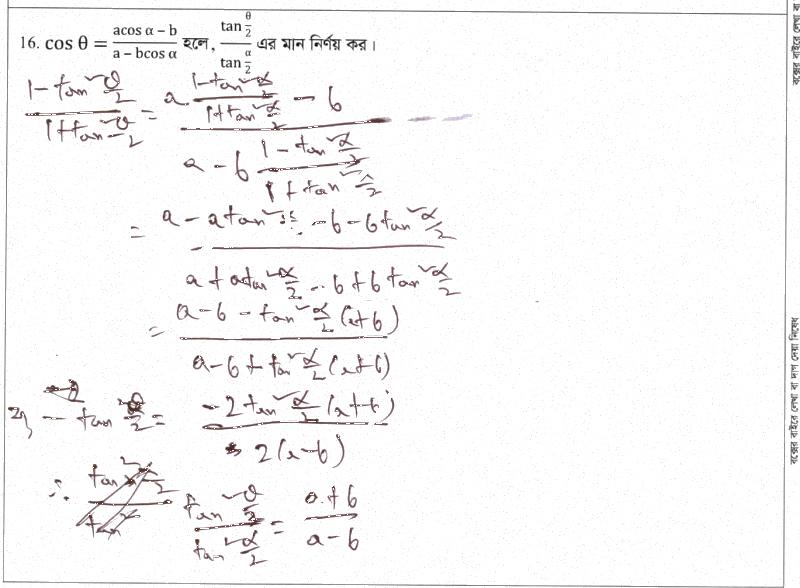 16. cos θ = (acos α − b)/(a − bcos α) হলে, (tan θ/2)/(tan α/2) এর মান নির্ণয় কর।
(1 − tan²θ/2)/(1 + tan²θ/2) = (a · (1 − tan²α/2)/(1 + tan²α/2) − b)/(a − b (1 − tan²α/2)/(1 + tan²α/2))
= (a − a tan² − b − b tan²α/2)/(a + a tan²α/2 − b + b tan²α/2)
= (a − b − tan²α/2 (a + b))/(a − b + tan²α/2 (a + b))
− tan²θ/2 = (−2 tan²α/2 (a + b))/(2(a − b))
∴ (tan²θ/2)/(tan²α/2) = (a + b)/(a − b)
বক্সের বাইরে লেখা বা দাগ দেয়া নিষেধ
বক্সের বাইরে লেখা বা